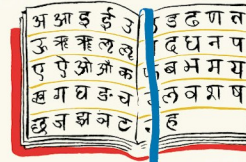 अ आ इ ई उ
ऊ ऋ ॠ ऌ ॡ
ए ऐ ओ औ क
ख ग घ ङ च
छ ज झ ञ ट
ड ढ ण त
द ध न प
ब भ म य
ल व श ष
ह